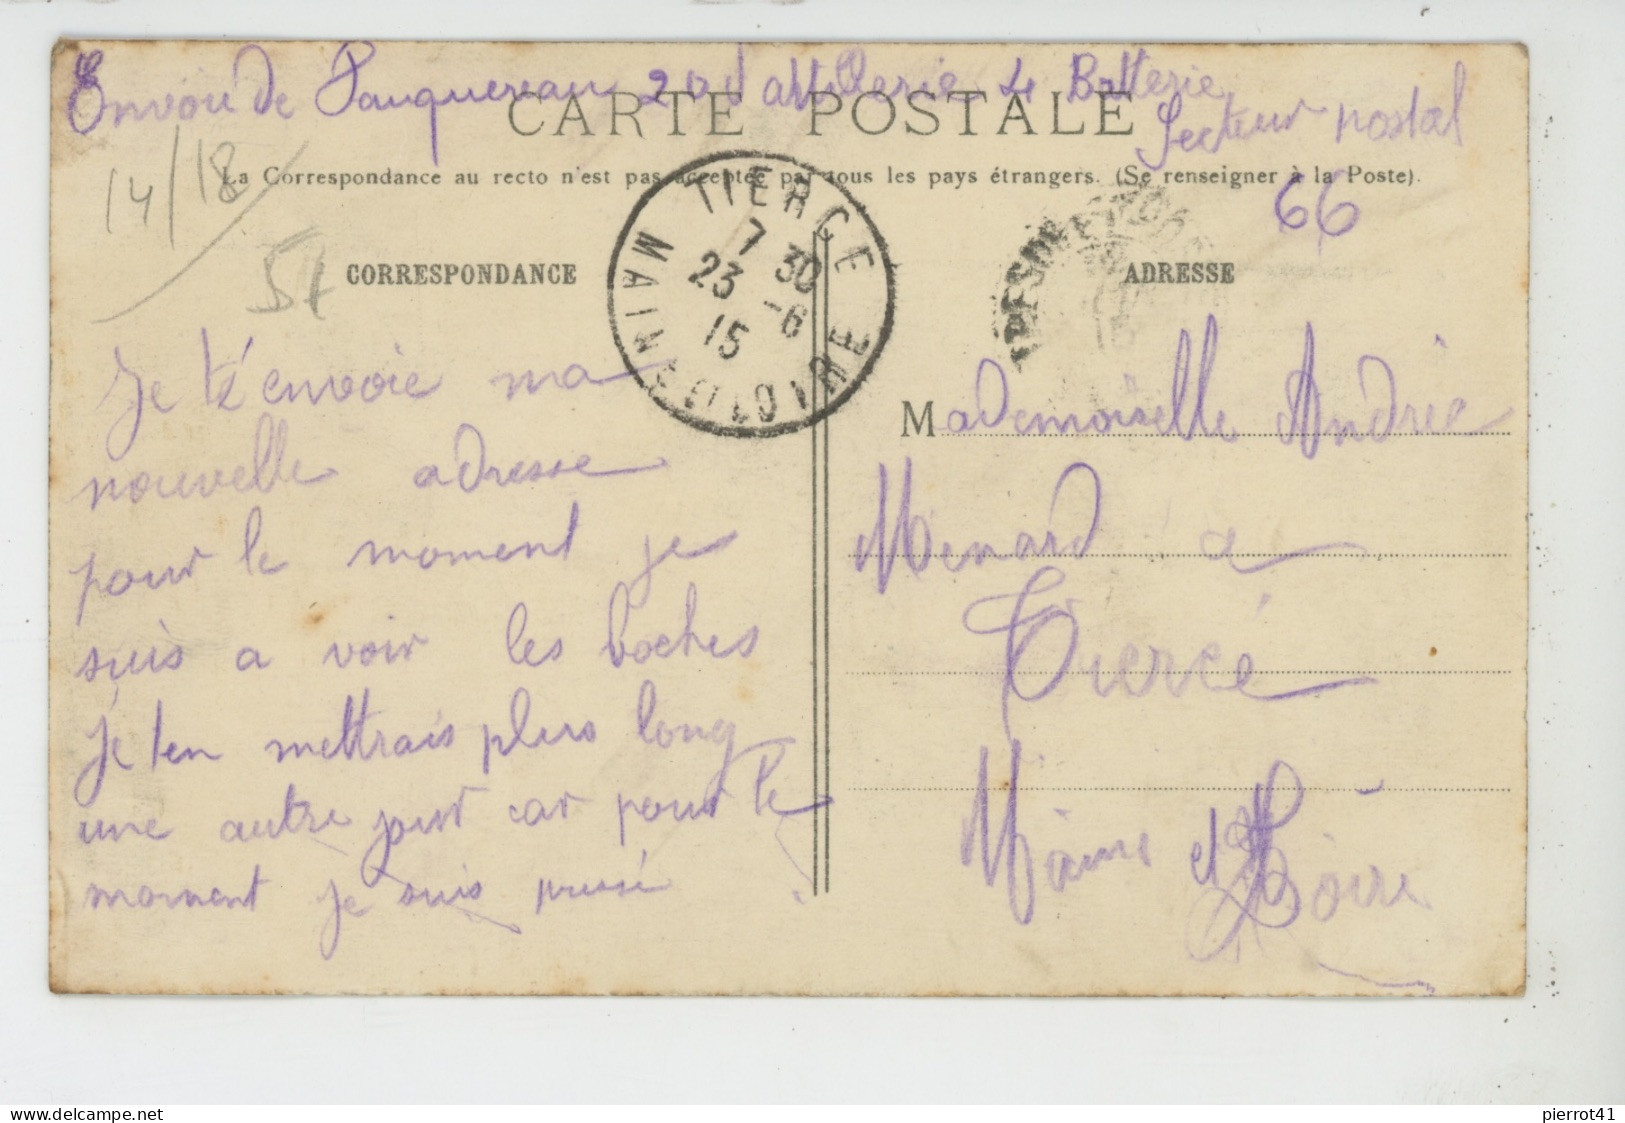 Envoie de Pauquereau 20 d'artillerie 4 Batterie
Secteur postal
66
CARTE POSTALE
La Correspondance au recto n'est pas acceptée par tous les pays étrangers. (Se renseigner à la Poste).
14/18
51
CORRESPONDANCE
TIERCE
7 30
23 -6
15
MAINE ET LOIRE
ADRESSE
Je t'envoie ma
nouvelle adresse
pour le moment je
suis a voir les boches
je ten mettrais plus long
une autre jour car pour le
moment je suis pressé
Mademoiselle Andrée
Menard a
Tiercé
Maine et Loire
pierrot41